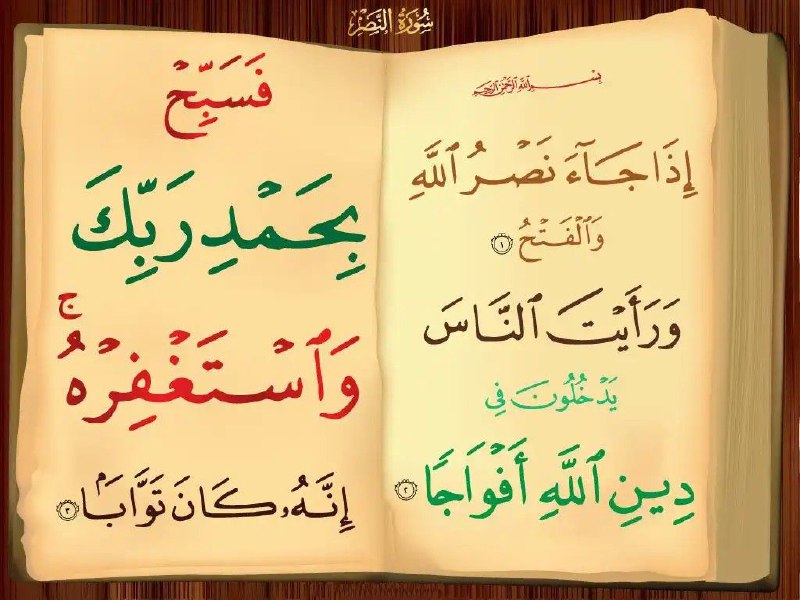 سُورَةُ النَّصْرِ
بِسْمِ اللَّهِ الرَّحْمَٰنِ الرَّحِيمِ
إِذَا جَآءَ نَصْرُ ٱللَّهِ
وَٱلْفَتْحُ ١
وَرَأَيْتَ ٱلنَّاسَ
يَدْخُلُونَ فِى
دِينِ ٱللَّهِ أَفْوَاجًا ٢
فَسَبِّحْ
بِحَمْدِ رَبِّكَ
وَٱسْتَغْفِرْهُ ۚ
إِنَّهُۥ كَانَ تَوَّابَۢا ٣